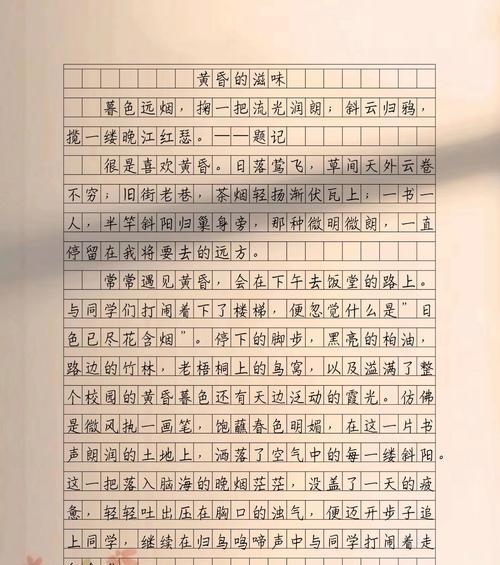 黄昏的滋味
暮色远烟，掬一把流光润朗；斜云归鸦，
揽一缕晚江红瑟。——题记
很是喜欢黄昏。日落莺飞，草间天外云卷
不穷；旧街老巷，茶烟轻扬渐伏瓦上；一书一
人，半竿斜阳归巢身旁，那种微明微朗，一直
停留在我将要去的远方。
常常遇见黄昏，会在下午去饭堂的路上。
与同学们打闹着下了楼梯，便忽觉什么是”日
色已尽花含烟”。停下的脚步，黑亮的柏油，
路边的竹林，老梧桐上的鸟窝，以及溢满了整
个校园的黄昏暮色还有天边泛动的霞光。仿佛
是微风执一画笔，饱蘸春色明媚，在这一片书
声朗润的土地上，洒落了空气中的每一缕斜阳。
这一把落入脑海的晚烟茫茫，没盖了一天的疲
惫，轻轻吐出压在胸口的浊气，便迈开步子追
上同学，继续在归鸟鸣啼声中与同学打闹着走